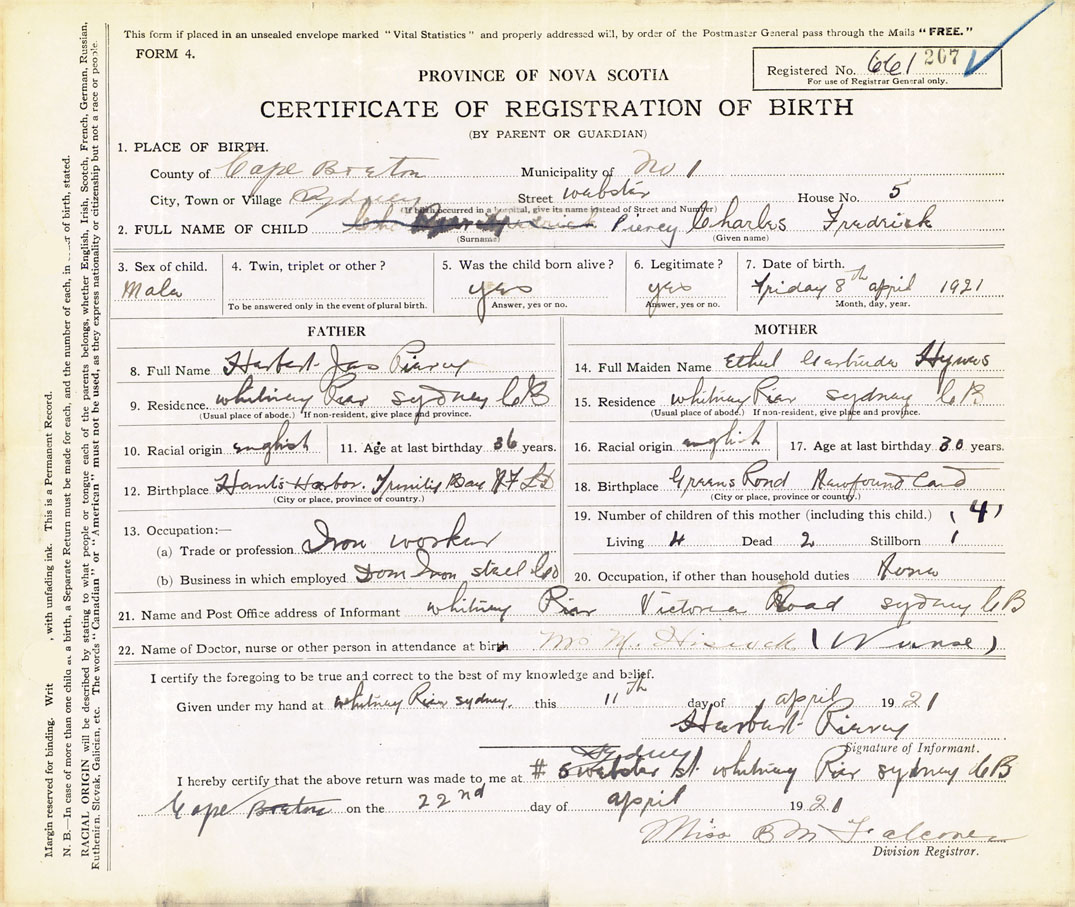 This form if placed in an unsealed envelope marked "Vital Statistics" and properly addressed will, by order of the Postmaster General pass through the Mails "FREE."
FORM 4.
Registered No. 661 207
For use of Registrar General only.
PROVINCE OF NOVA SCOTIA
CERTIFICATE OF REGISTRATION OF BIRTH
(BY PARENT OR GUARDIAN)
1. PLACE OF BIRTH.
County of Cape Breton Municipality of No 1
City, Town or Village Sydney Street Webster House No. 5
(If birth occurred in a hospital, give its name instead of Street and Number)
2. FULL NAME OF CHILD Piercy Charles Fredrick
(Surname) (Given name)
3. Sex of child. 4. Twin, triplet or other? 5. Was the child born alive? 6. Legitimate? 7. Date of birth.
Male yes yes Friday 8th april 1921
To be answered only in the event of plural birth. Answer, yes or no. Answer, yes or no. Month, day, year.
FATHER
8. Full Name Herbert Jas Piercy
9. Residence. Whitney Pier Sydney C B
(Usual place of abode.) If non-resident, give place and province.
10. Racial origin english 11. Age at last birthday 36 years.
12. Birthplace Hants Harbor. Trinity Bay N F Ld
(City or place, province or country.)
13. Occupation:—
(a) Trade or profession Iron worker
(b) Business in which employed Dom Iron steel Co
MOTHER
14. Full Maiden Name Ethel Gertrude Hynes
15. Residence Whitney Pier Sydney C B
(Usual place of abode.) If non-resident, give place and province.
16. Racial origin english 17. Age at last birthday 30 years.
18. Birthplace Greens Pond Newfound Land
(City or place, province or country.)
19. Number of children of this mother (including this child.) (4)
Living 4 Dead 2 Stillborn 1
20. Occupation, if other than household duties None
21. Name and Post Office address of Informant Whitney Pier Victoria Road Sydney C B
22. Name of Doctor, nurse or other person in attendance at birth Mrs M. Hiscock (Nurse)
I certify the foregoing to be true and correct to the best of my knowledge and belief.
Given under my hand at Whitney Pier Sydney. this 11th day of april 1921
Herbert Piercy
Signature of Informant.
Sydney
I hereby certify that the above return was made to me at # 5 Webster St. Whitney Pier Sydney C B
Cape Breton on the 22nd day of april 1921
Miss B M Falconer
Division Registrar.
Margin reserved for binding. Writ , with unfading ink. This is a Permanent Record.
N. B.—In case of more than one child at a birth, a Separate Return must be made for each, and the number of each, in of birth, stated.
RACIAL ORIGIN will be described by stating to what people or tongue each of the parents belongs, whether English, Irish, Scotch, French, German, Russian,
Ruthenian, Slovak, Galician, etc. The words "Canadian" or "American" must not be used, as they express nationality or citizenship but not a race or people.